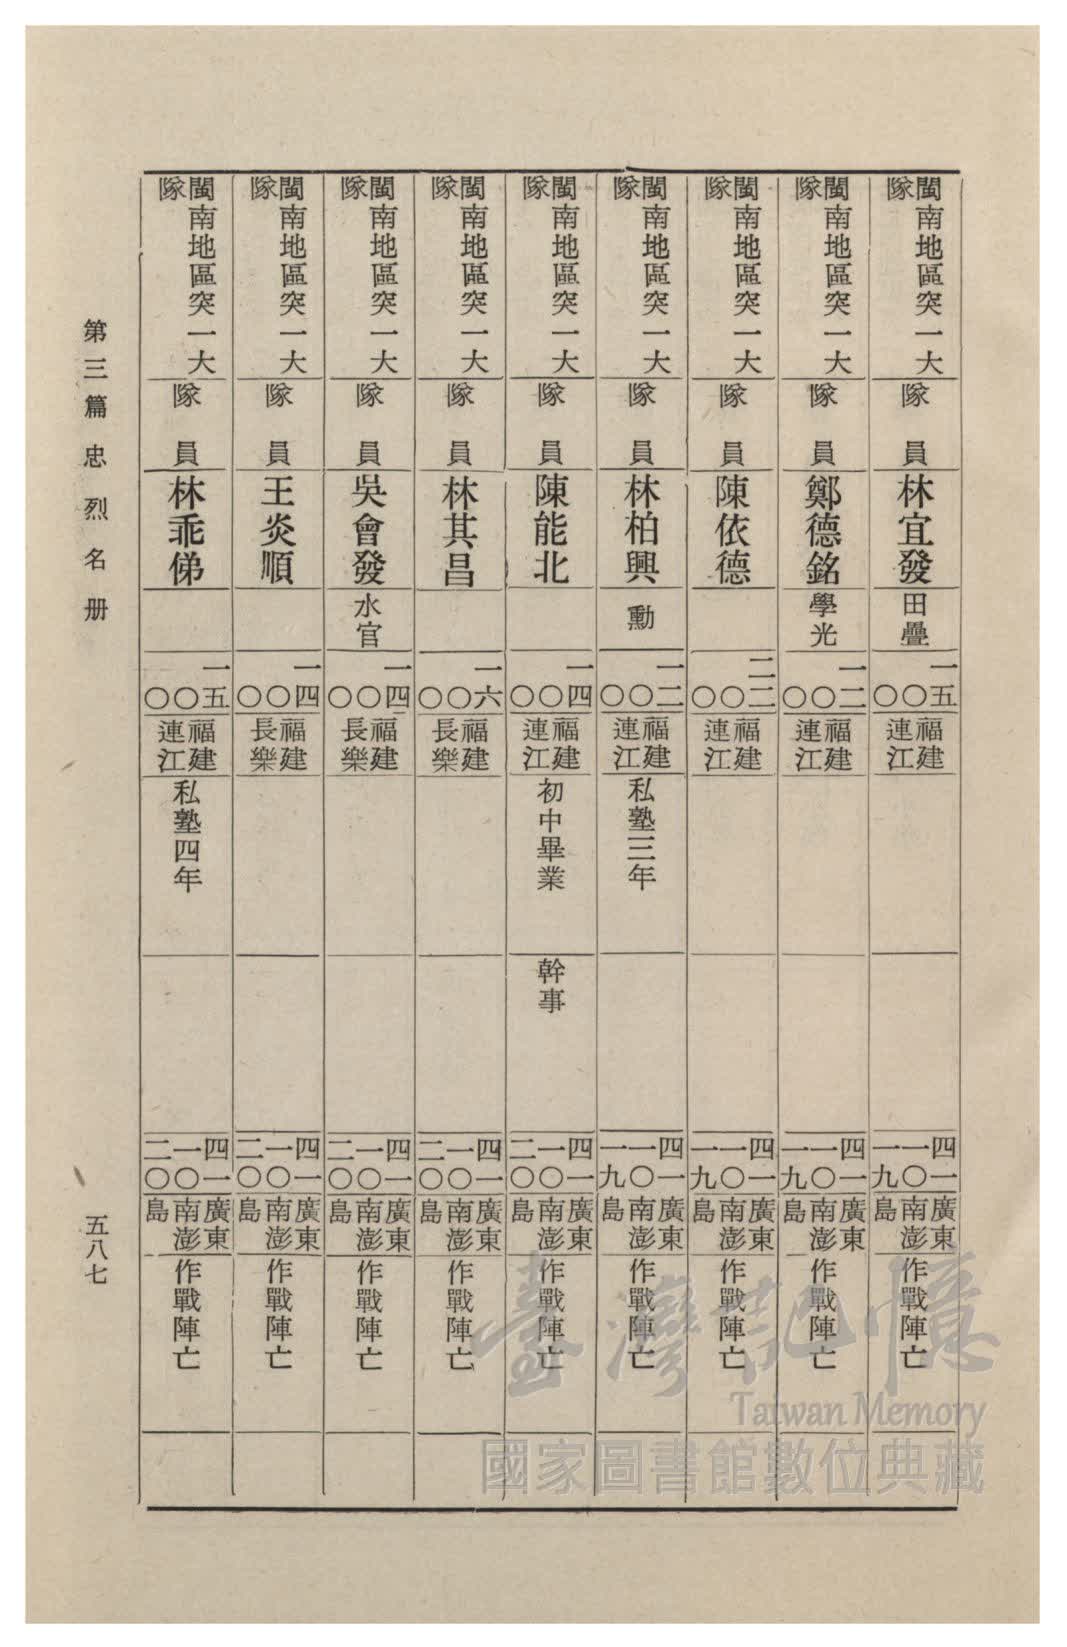 閩南地區突一大隊 隊員 林宜發 田疊 一五 〇 〇 福建連江 四一 一〇 一九 廣東南澎島 作戰陣亡
閩南地區突一大隊 隊員 鄭德銘 學光 一二 〇 〇 福建連江 四一 一〇 一九 廣東南澎島 作戰陣亡
閩南地區突一大隊 隊員 陳依德 二二 〇 〇 福建連江 四一 一〇 一九 廣東南澎島 作戰陣亡
閩南地區突一大隊 隊員 林柏興 勳 一二 〇 〇 福建連江 私塾三年 四一 一〇 一九 廣東南澎島 作戰陣亡
閩南地區突一大隊 隊員 陳能北 一四 〇 〇 福建連江 初中畢業 幹事 四一 一〇 二〇 廣東南澎島 作戰陣亡
閩南地區突一大隊 隊員 林其昌 一六 〇 〇 福建長樂 四一 一〇 二〇 廣東南澎島 作戰陣亡
閩南地區突一大隊 隊員 吳會發 水官 一四 〇 〇 福建長樂 四一 一〇 二〇 廣東南澎島 作戰陣亡
閩南地區突一大隊 隊員 王炎順 一四 〇 〇 福建長樂 四一 一〇 二〇 廣東南澎島 作戰陣亡
閩南地區突一大隊 隊員 林乖俤 一五 〇 〇 福建連江 私塾四年 四一 一〇 二〇 廣東南澎島 作戰陣亡
第三篇 忠烈名册
五八七
臺灣記憶
Taiwan Memory
國家圖書館數位典藏